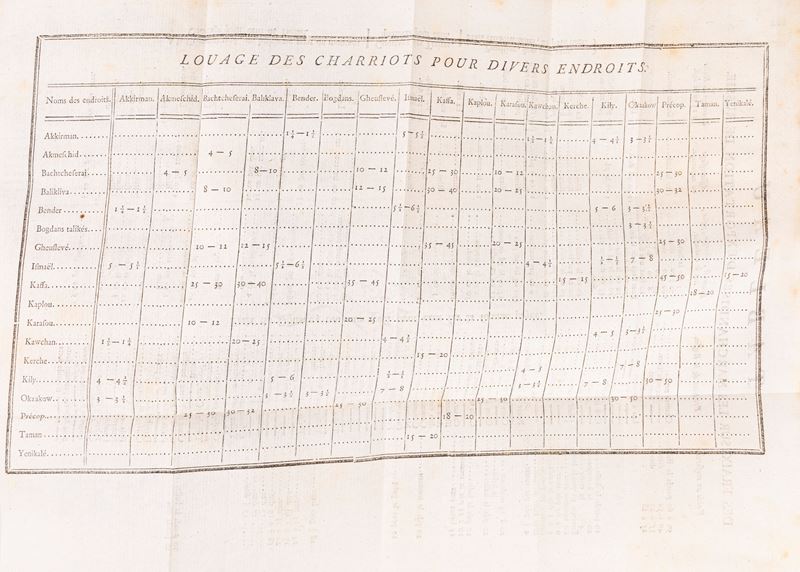 LOUAGE DES CHARRIOTS POUR DIVERS ENDROITS.
Noms des endroits. Akkirman. Akmeſchid. Bachtcheſerai. Baliklava. Bender. Bogdans. Gheuſlevé. Iſmaël. Kaffa. Kaplou. Karaſou. Kawchan. Kerche. Kily. Okzakow Précop. Taman. Yenikalé.
Akkirman. 1¼—1½ 5—5½ 1½—1½ 4—4½ 3—3½
Akmeſchid. 4—5
Bachtcheſerai. 4—5 8—10 10—12 25—30 10—12 25—30
Balikliva. 8—10 12—15 30—40 20—25 30—32
Bender 1¼—1½ 5—6 3—3½
Bogdans talikés. 3—3½
Gheuſlevé. 10—12 12—15 35—45 20—25 25—30
Iſmaël. 5—5½ 4—4½ 7—8
Kaffa. 25—30 30—40 35—45 15—15 45—50 15—20
Kaplou. 18—20
Karaſou. 10—12 20—25 25—30
Kawchan. 20—25 4—4½ 4—5 3—3½
Kerche 15—20
Kily. 4—4½ 5—6 4—5 7—8
Okzakow. 3—3½ 3—3½ 3—3½ 7—8 7—8 30—50
Précop. 25—30 30—32 25—30 25—30 30—50
Taman 18—20
Yenikalé. 15—20